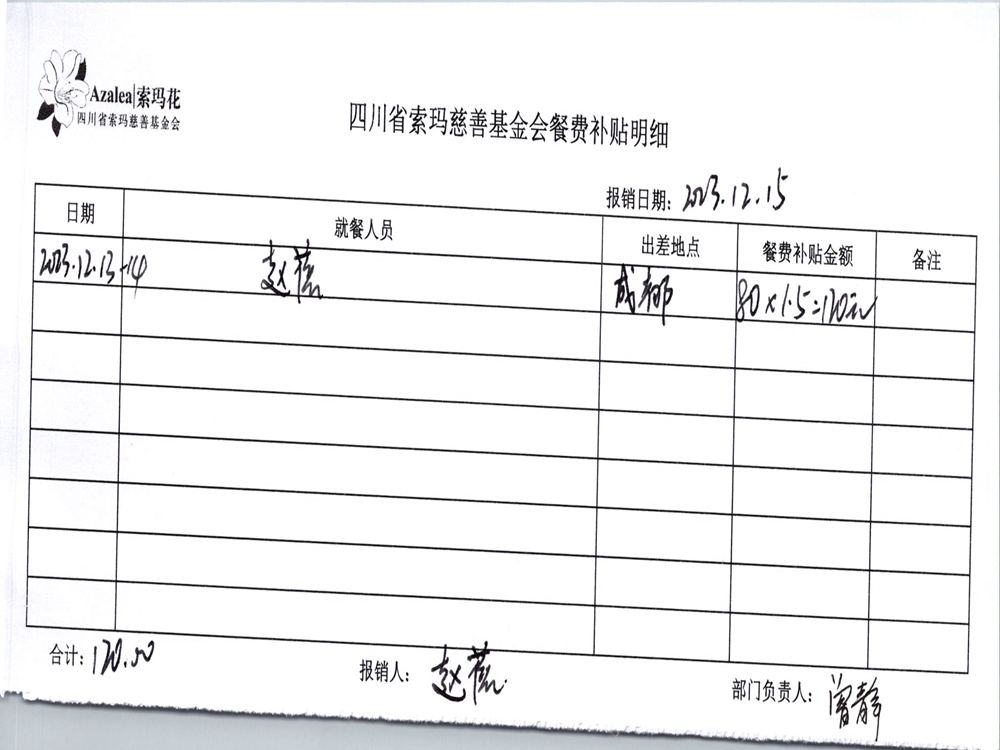 Azalea|索玛花
四川省索玛慈善基金会
四川省索玛慈善基金会餐费补贴明细
报销日期: 2023.12.15
日期 就餐人员 出差地点 餐费补贴金额 备注
2023.12.13-14 赵蕊 成都 80×1.5=120元
合计: 120.00 报销人: 赵蕊 部门负责人: 曾静